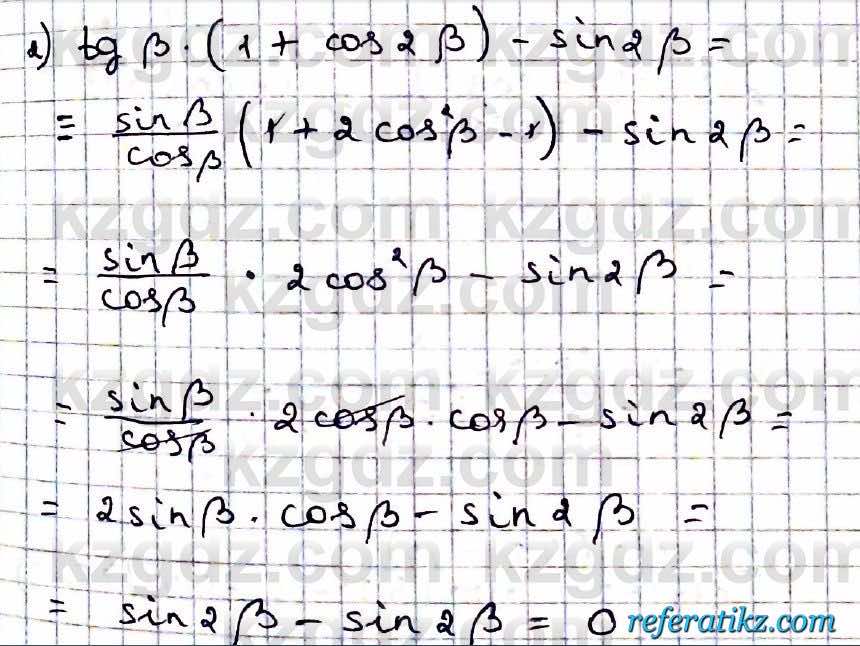 1) tg β · (1 + cos 2β) - sin 2β =
= sin β / cos β (1 + 2 cos²β - 1) - sin 2β =
= sin β / cos β · 2 cos²β - sin 2β =
= sin β / cos β · 2 cos β · cos β - sin 2β =
= 2 sin β · cos β - sin 2β =
= sin 2β - sin 2β = 0
referatikz.com
kzgdz.com kzgdz.com